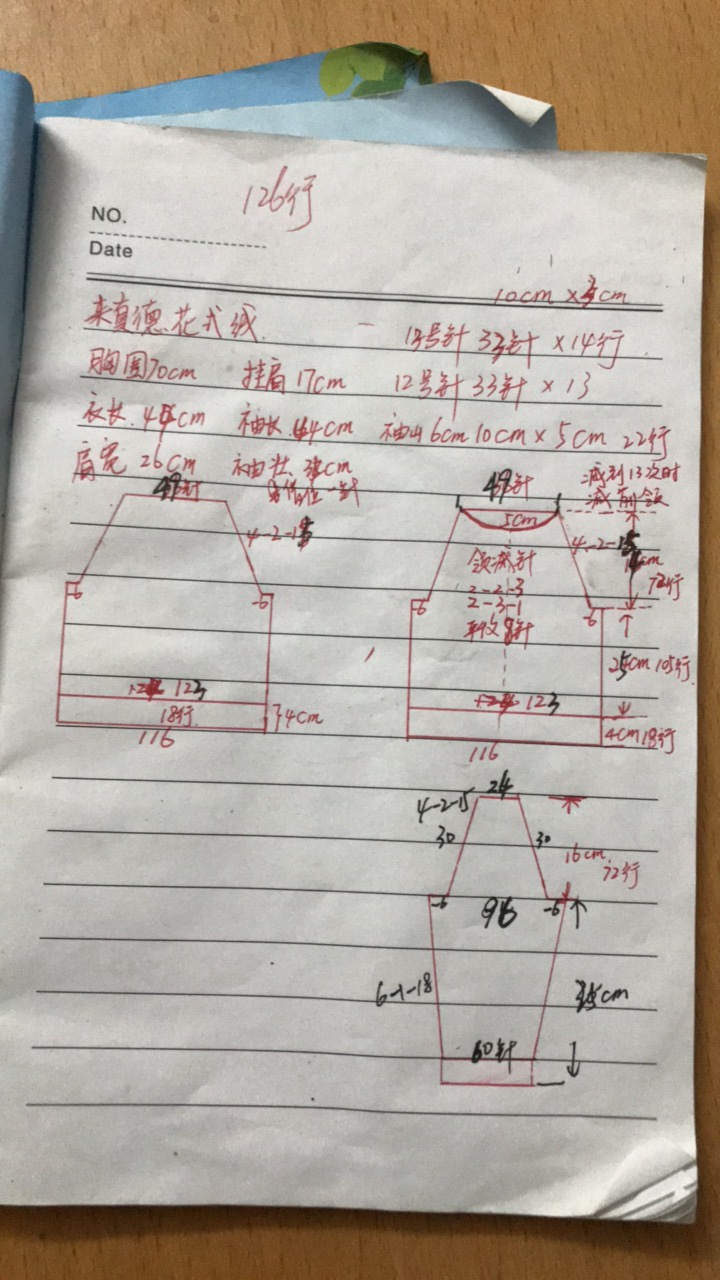 126行
NO.
Date
10cm × cm
来真德花式线
13号针 33针 × 14行
胸围70cm 挂肩17cm 12号针 33针 × 13
衣长 cm 袖长 44cm 袖山6cm 10cm × 5cm 22行
肩宽26cm 袖壮 cm
一针
减到13次时
减前领
49针
4-2-15
-6
-6
123
18行
4cm
116
49针
5cm
4-2-15
cm
72行
领减针
2-2-3
2-3-1
平收 针
-6
-6
25cm 105行
123
4cm 18行
116
24
4-2-15
30
30
16cm
72行
-6
96
-6
6-1-18
35cm
60针